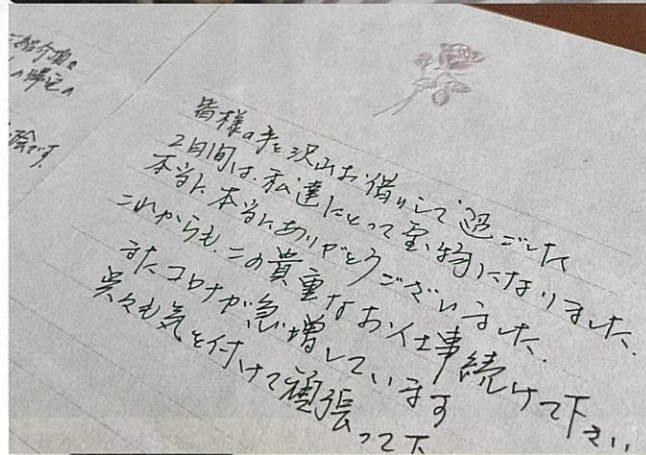 ご紹介頂き
皆様の手を沢山お借りして過ごした
2日間は、私達にとって宝物になりました、
本当に本当にありがとうございました、
これからも、この貴重なお仕事続けて下さい
またコロナが急増しています
呉々も気を付けて頑張って下